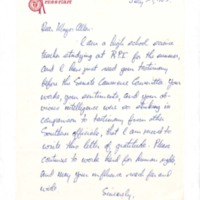 Dear Mayor Allen:
I am a high school science
teacher studying at R.P.I. for the summer,
and I have just read your testimony
before the Senate Commerce Committee. Your
words, your sentiments, and your ob-
vious intelligence was so striking in
comparison to testimony from other
Southern officials, that I am moved to
write this letter of gratitude. Please
continue to work hard for human rights,
and may your influence reach far and
wide.
Sincerely,